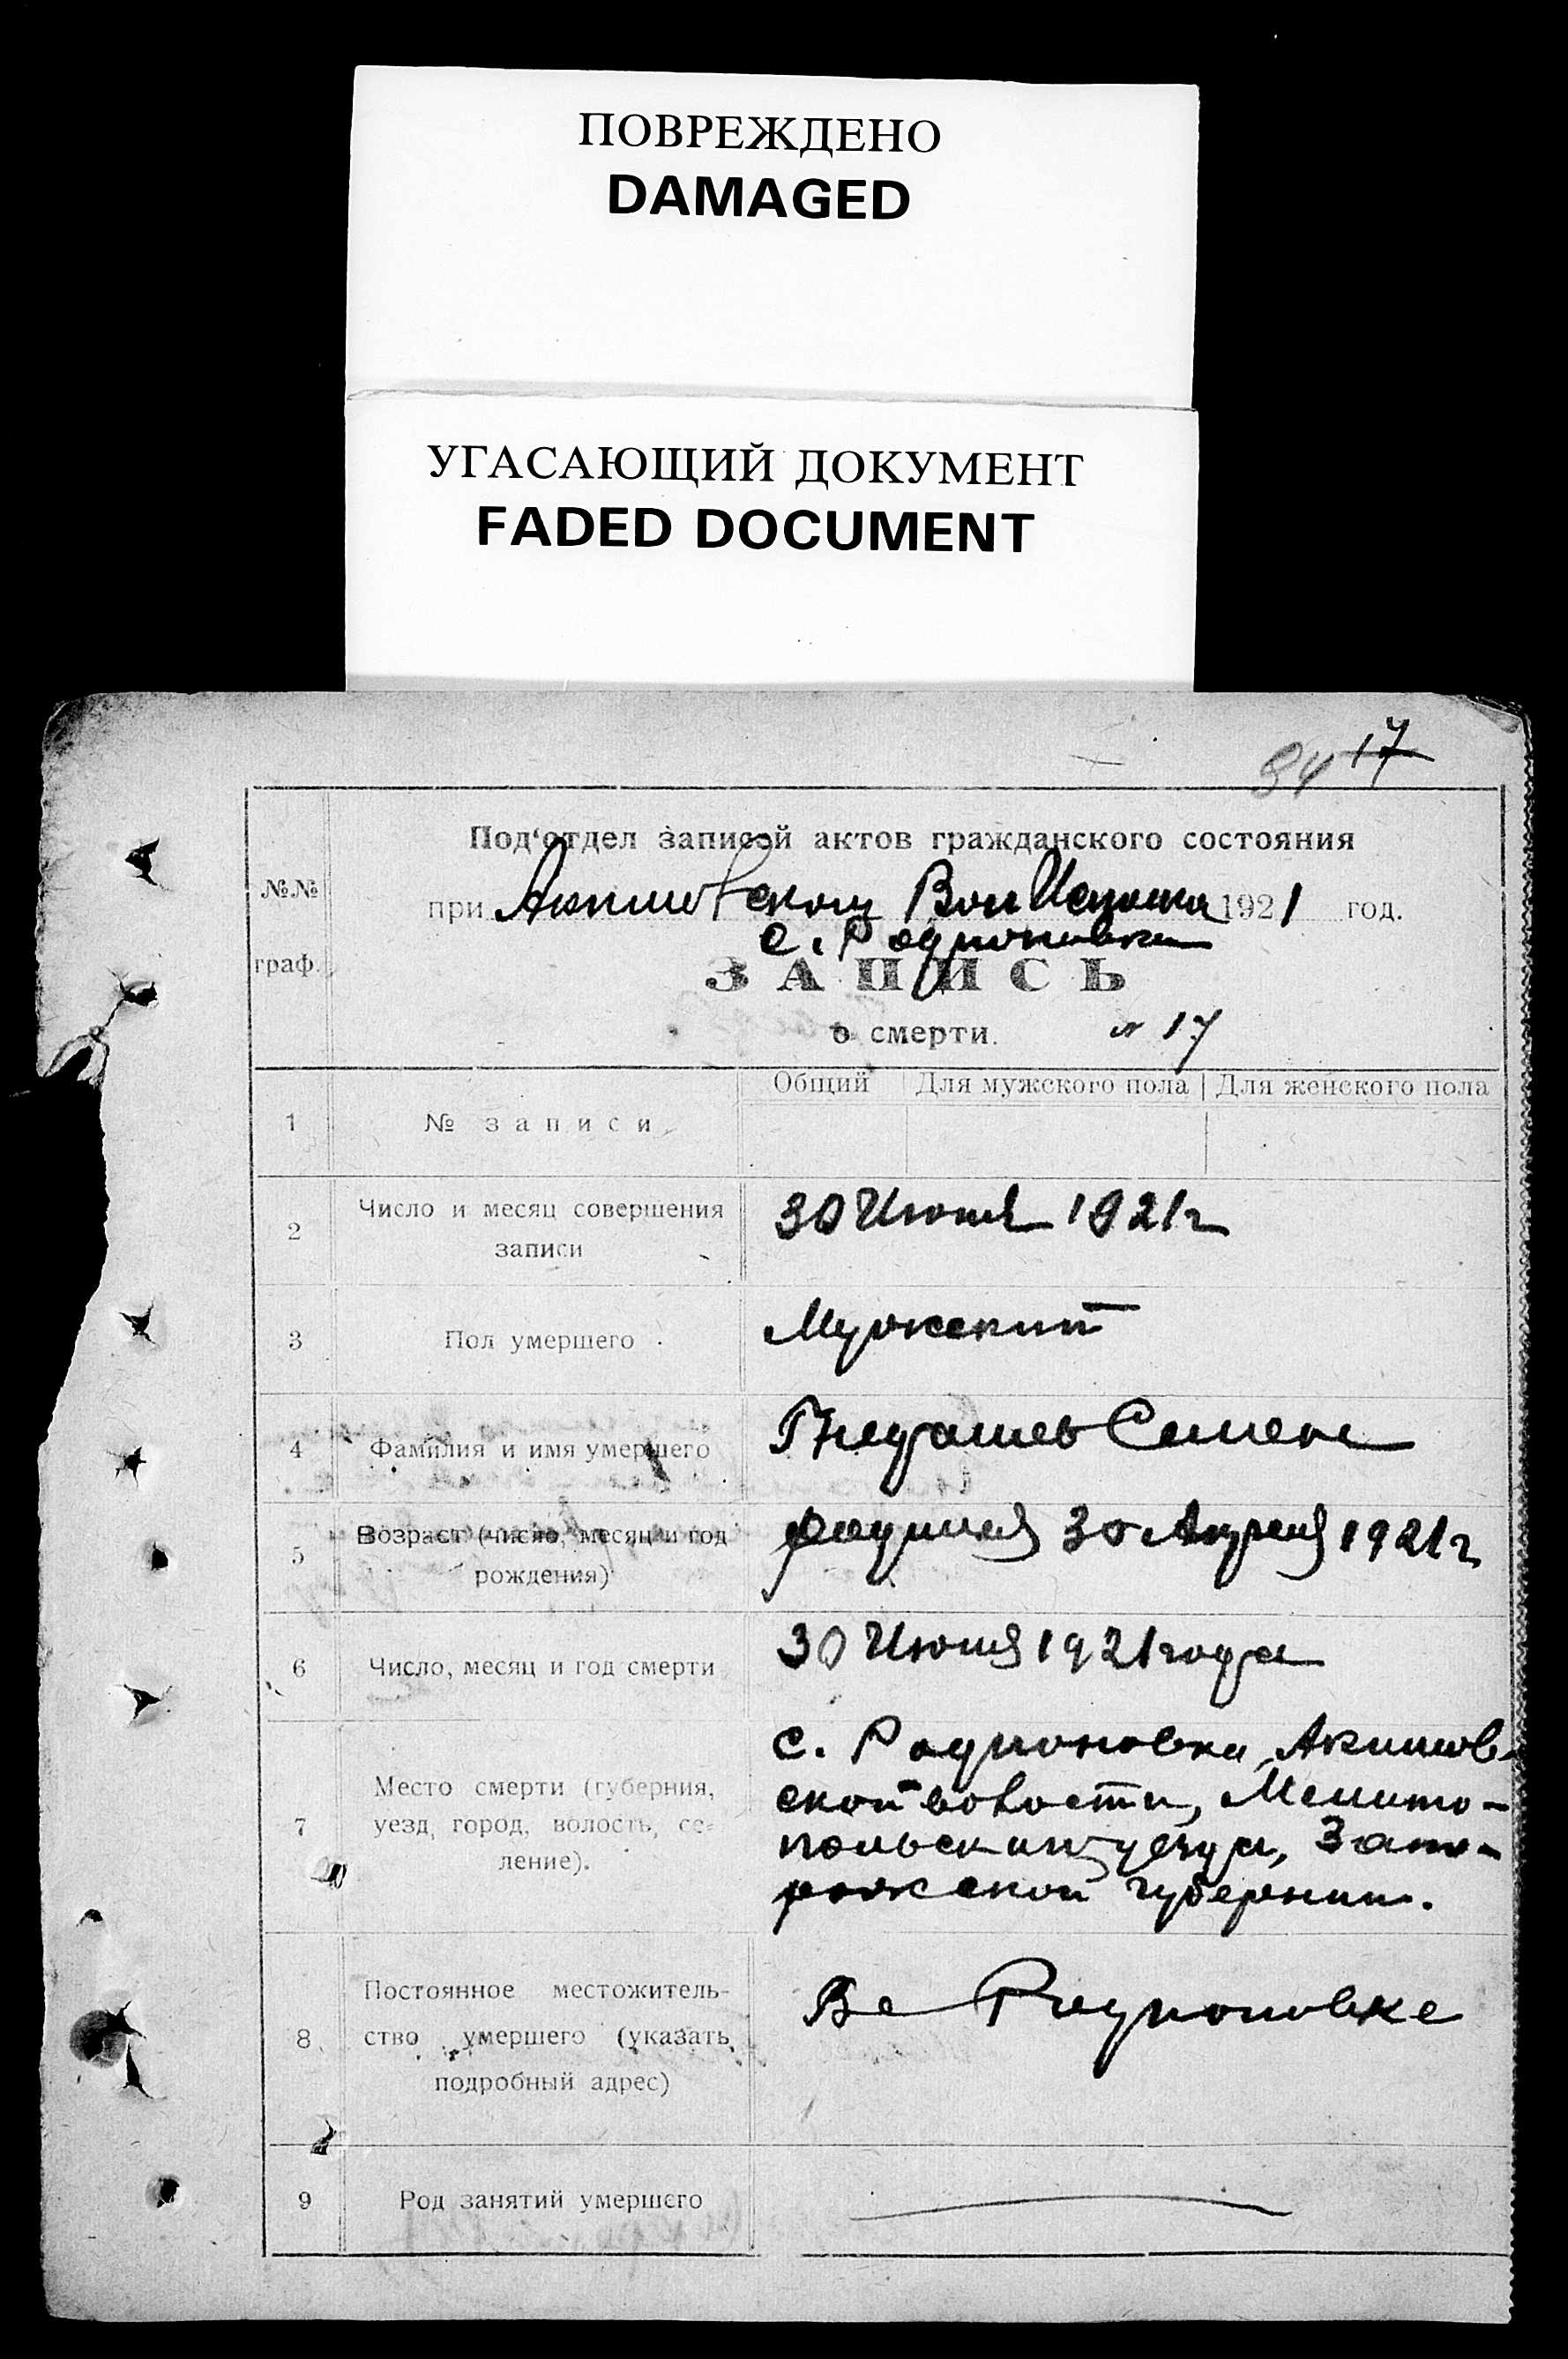 ПОВРЕЖДЕНО
DAMAGED
УГАСАЮЩИЙ ДОКУМЕНТ
FADED DOCUMENT
84 17
№№
граф.
Под‘отдел записей актов гражданского состояния
при Акимовском Вол 1921 год.
с. Родионовка
ЗАПИСЬ
о смерти. № 17
Общий Для мужского пола Для женского пола
1 № записи
2 Число и месяц совершения
записи
30 Июня 1921 г
3 Пол умершего
Мужский
4 Фамилия и имя умершего
Семен
5 Возраст (число, месяц и год
рождения)
родился 30 Апреля 1921 г
6 Число, месяц и год смерти
30 Июня 1921 года
7 Место смерти (губерния,
уезд, город, волость, се-
ление).
с. Родионовка, Акимов-
ской волости, Мелито-
польского уезда, Запо-
рожской губернии.
8 Постоянное местожитель-
ство умершего (указать
подробный адрес)
В с Родионовке
9 Род занятий умершего